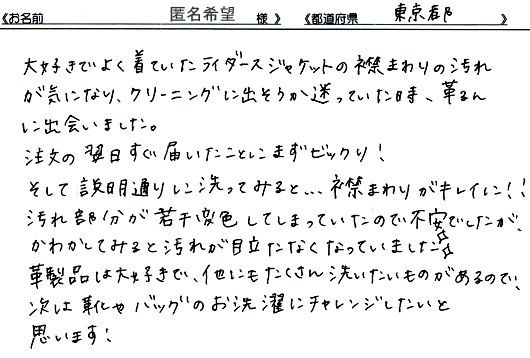 《お名前 匿名希望 様 》 《都道府県 東京都 》
大好きでよく着ていたライダースジャケットの襟まわりの汚れ
が気になり、クリーニングに出そうか迷っていた時、革るん
に出会いました。
注文の翌日すぐ届いたことにまずビックリ!
そして説明通りに洗ってみると... 襟まわりがキレイに!!
汚れ部分が若干変色してしまっていたので不安でしたが、
かわかしてみると汚れが目立たなくなっていました☆☆
革製品は大好きで、他にもたくさん洗いたいものがあるので、
次は靴やバッグのお洗濯にチャレンジしたいと
思います!